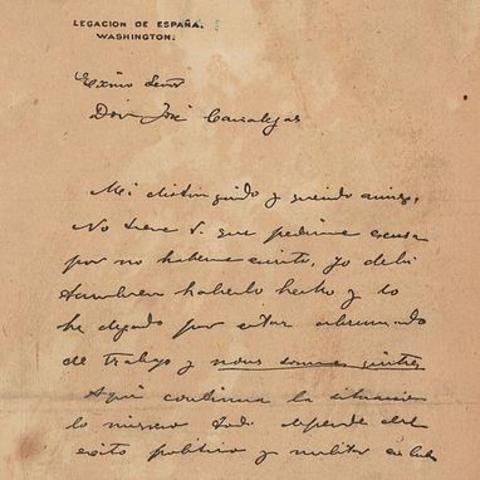 LEGACION DE ESPAÑA.
WASHINGTON.
Exmo Señor
Don José Canalejas
Mi distinguido y querido amigo:
No tiene V. que pedirme excusa
por no haberme escrito, yo debi
tambien haberlo hecho y lo
he dejado por estar abrumado
de trabajo y nous sommes quittes
Aqui continua la situacion
lo mismo todo depende del
exito politico y militar en Cuba